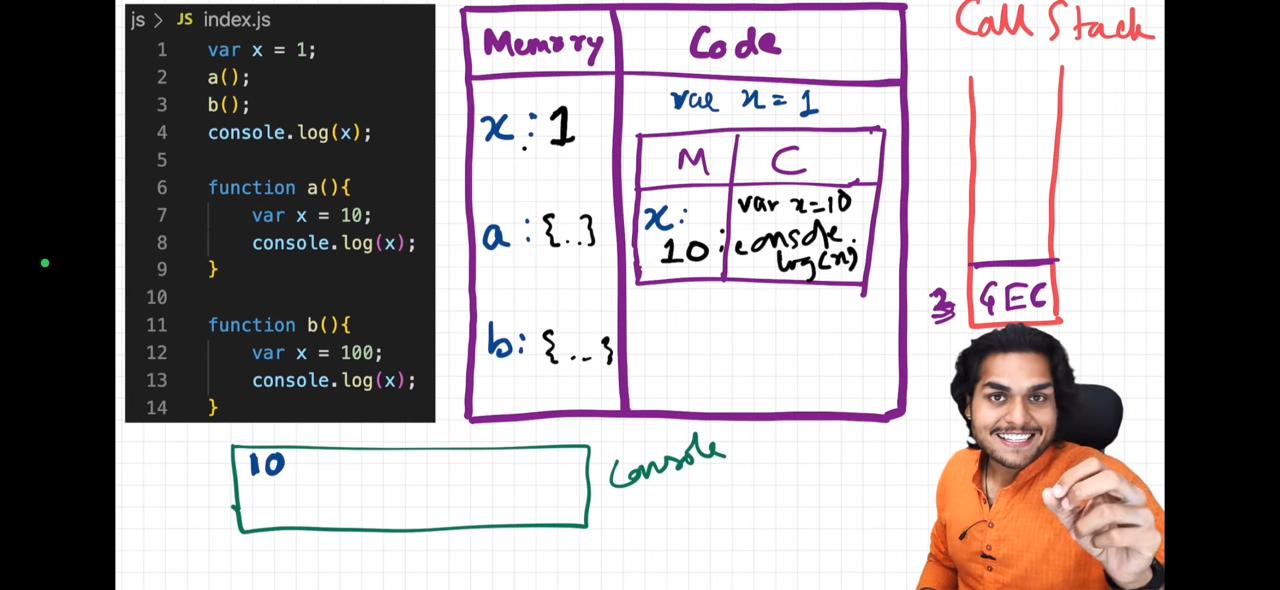 js > JS index.js
1 var x = 1;
2 a();
3 b();
4 console.log(x);
5
6 function a(){
7 var x = 10;
8 console.log(x);
9 }
10
11 function b(){
12 var x = 100;
13 console.log(x);
14 }
Memory Code
x : 1
a : {..}
b : {..}
var x = 1
M C
x :
10
var x=10
console.
log(x)
Call Stack
GEC
10
Console